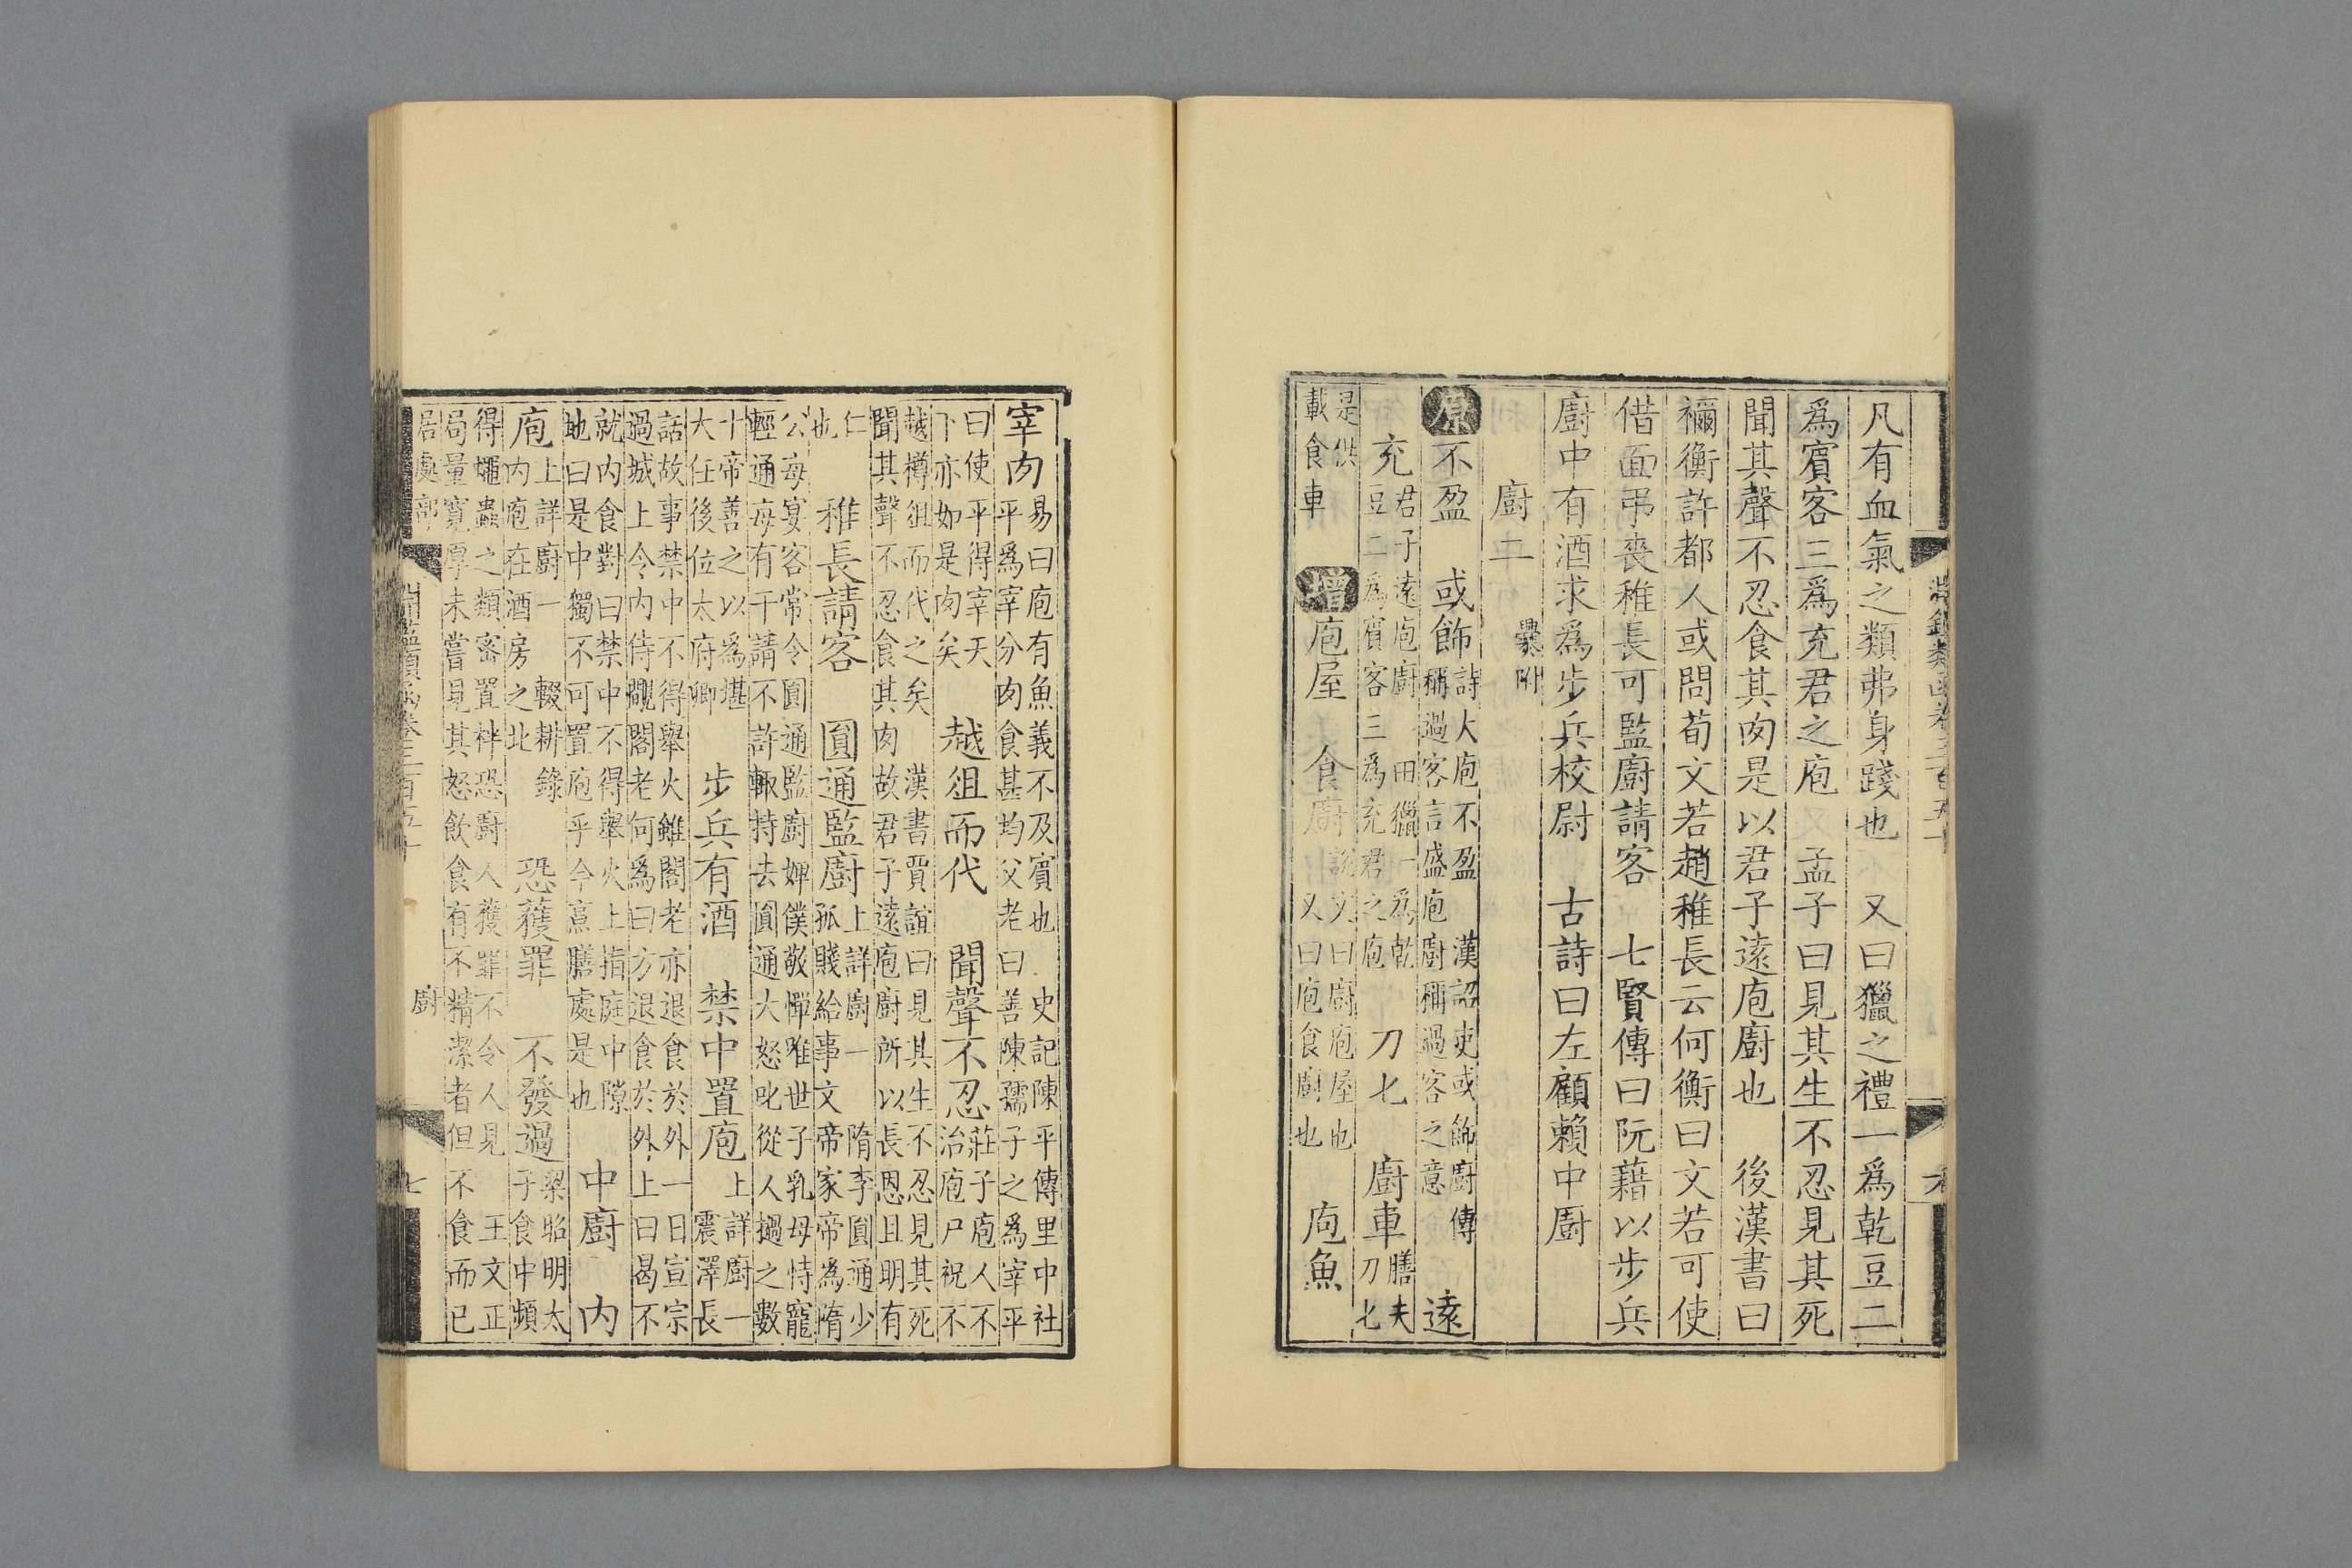 凡有血氣之類弗身踐也　又曰獵之禮一爲乾豆二
爲賓客三爲充君之庖　孟子曰見其生不忍見其死
聞其聲不忍食其肉是以君子遠庖廚也　後漢書曰
禰衡許都人或問荀文若趙稚長云何衡曰文若可使
借面弔喪稚長可監廚請客　七賢傳曰阮藉以步兵
廚中有酒求爲步兵校尉　古詩曰左顧賴中廚
廚二　爨附
原不盈　或飾　詩大庖不盈　漢詔吏或飾廚傳
稱過客言盛庖廚稱過客之意　遠
充　君子遠庖廚　田獵一爲乾
豆二爲賓客三爲充君之庖　刀匕　廚車　膳夫
刀匕
是供
載食車　增庖屋　食廚　說文曰廚庖屋也
又曰庖食廚也　庖魚
宰肉　易曰庖有魚義不及賓也　史記陳平傳里中社
平爲宰分肉食甚均父老曰善陳孺子之爲宰平
曰使平得宰天
下亦如是肉矣　越俎而代　聞聲不忍　莊子庖人不
治庖尸祝不
越樽俎而代之矣　漢書賈誼曰見其生不忍見其死
聞其聲不忍食其肉故君子遠庖廚所以長恩且明有
仁
也　稚長請客　圓通監廚　上詳廚一　隋李圓通少
孤賤給事文帝家帝爲隋
公每宴客常令圓通監廚婢僕敬憚唯世子乳母恃寵
輕通每有干請不許輒持去圓通大怒叱從人撾之數
十帝善之以爲堪
大任後位太府卿　步兵有酒　禁中置庖　上詳廚一
震澤長
話故事禁中不得舉火雖閣老亦退食於外一日宣宗
過城上令內侍覵閣老何爲曰方退食於外上曰曷不
就內食對曰禁中不得舉火上指庭中隙
地曰是中獨不可置庖乎今烹膳處是也　中廚　內
庖　上詳廚一　輟耕錄
內庖在酒房之北　恐獲罪　不發過　梁昭明太
子食中頻
得蠅蟲之類密置柈恐廚人獲罪不令人見　王文正
局量寬厚未嘗見其怒飲食有不精潔者但不食而已
居處部　廚　七